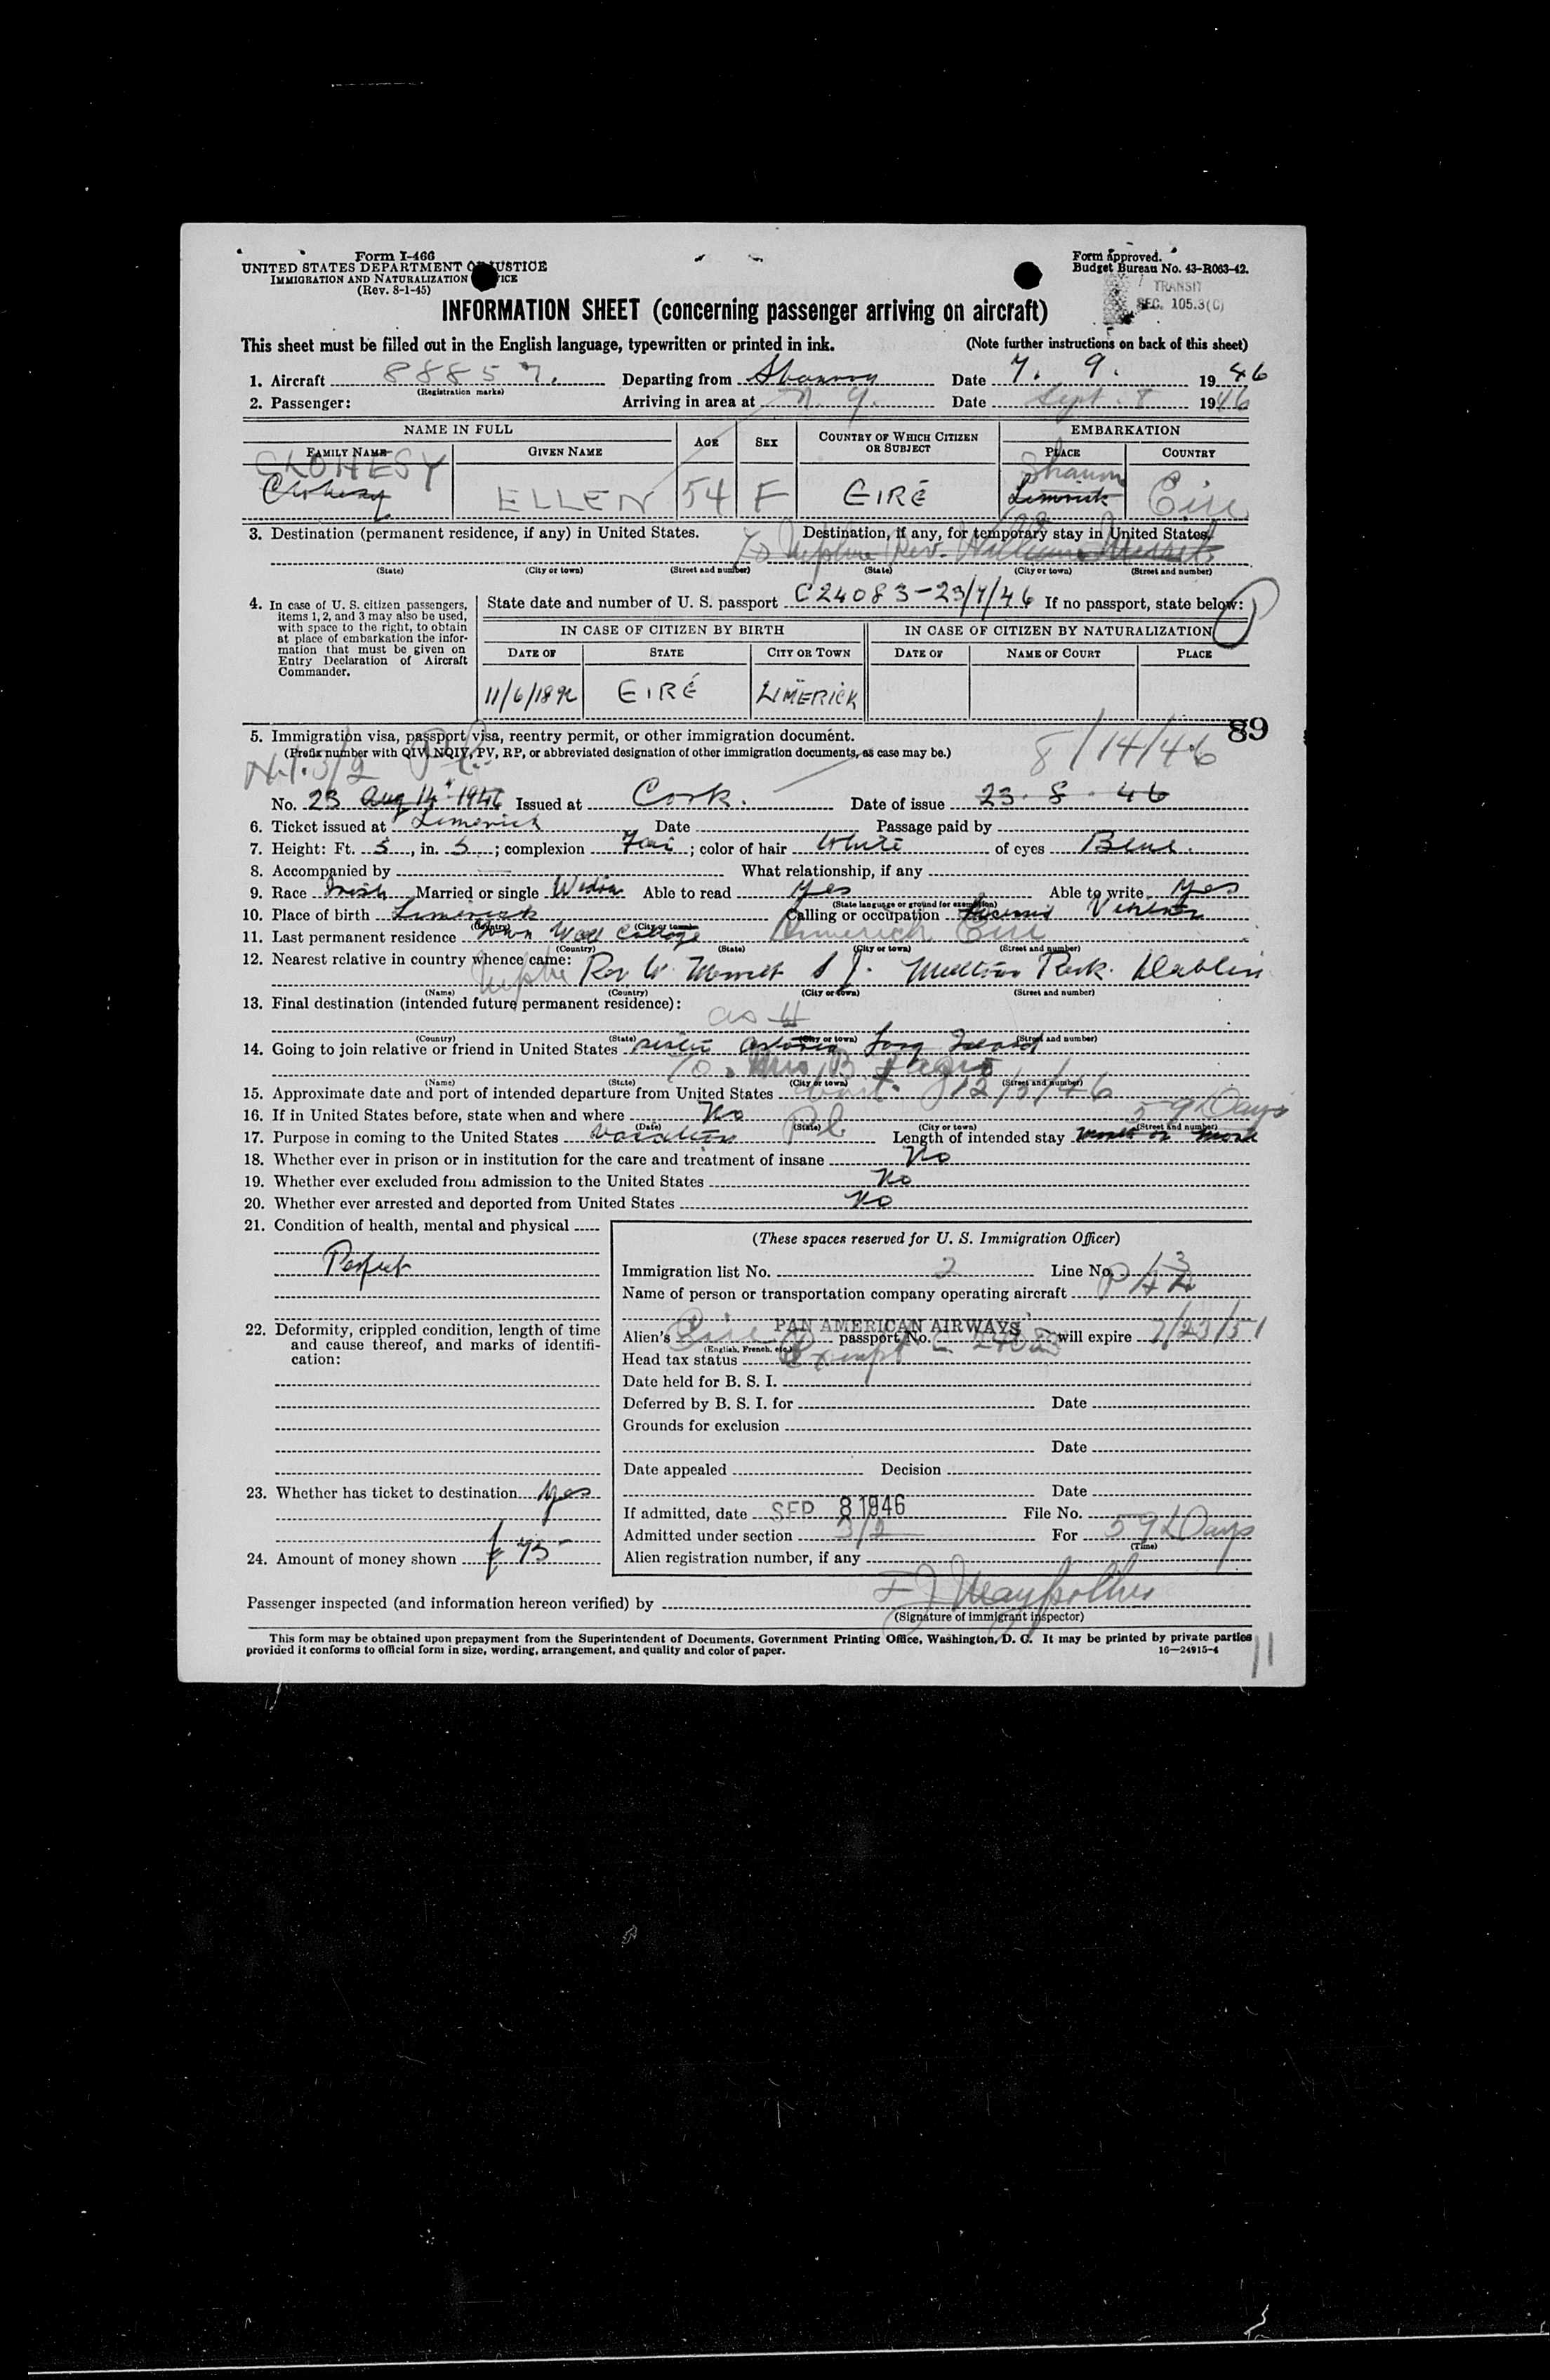 Form I-466
UNITED STATES DEPARTMENT OF JUSTICE
IMMIGRATION AND NATURALIZATION SERVICE
(Rev. 8-1-45)
Form approved.
Budget Bureau No. 43-R063-42.
TRANSIT
SEC. 105.3(C)
INFORMATION SHEET (concerning passenger arriving on aircraft)
This sheet must be filled out in the English language, typewritten or printed in ink. (Note further instructions on back of this sheet)
1. Aircraft 88857. Departing from Shannon Date 7. 9. 1946
(Registration marks)
2. Passenger: Arriving in area at N.Y. Date Sept. 8 1946
NAME IN FULL AGE SEX COUNTRY OF WHICH CITIZEN OR SUBJECT EMBARKATION
FAMILY NAME GIVEN NAME PLACE COUNTRY
CLOHESY Shannon
Clohesy ELLEN 54 F EIRÉ Limerick Eire
3. Destination (permanent residence, if any) in United States. Destination, if any, for temporary stay in United States.
Nephew Rev. William
(State) (City or town) (Street and number) (State) (City or town) (Street and number)
4. In case of U. S. citizen passengers, items 1, 2, and 3 may also be used, with space to the right, to obtain at place of embarkation the information that must be given on Entry Declaration of Aircraft Commander.
State date and number of U. S. passport C24083-23/7/46 If no passport, state below:
IN CASE OF CITIZEN BY BIRTH IN CASE OF CITIZEN BY NATURALIZATION
DATE OF STATE CITY OR TOWN DATE OF NAME OF COURT PLACE
11/6/1892 EIRÉ LIMERICK
89
5. Immigration visa, passport visa, reentry permit, or other immigration document.
(Prefix number with QIV, NQIV, PV, RP, or abbreviated designation of other immigration documents, as case may be.)
3/2 8/14/46
No. 23 Aug 14 1946 Issued at Cork. Date of issue 23. 8. 46
6. Ticket issued at Limerick Date Passage paid by
7. Height: Ft. 5, in. 5; complexion Fair; color of hair White of eyes Blue.
8. Accompanied by What relationship, if any
9. Race Irish Married or single Widow Able to read Yes Able to write Yes
(State language or ground for exemption)
10. Place of birth Limerick Calling or occupation Licensed Vintner
(Country) (City or town)
11. Last permanent residence Town Wall Cottage Limerick Eire
(Country) (State) (City or town) (Street and number)
12. Nearest relative in country whence came:
Nephew Rev W. S J. Milltown Park. Dublin
(Name) (Country) (City or town) (Street and number)
13. Final destination (intended future permanent residence):
as #
(Country) (State) (City or town) (Street and number)
14. Going to join relative or friend in United States sister Astoria Long Island
Mrs B
(Name) (State) (City or town) (Street and number)
15. Approximate date and port of intended departure from United States 12/5/46
16. If in United States before, state when and where No 59 Days
(Date) (State) (City or town) (Street and number)
17. Purpose in coming to the United States Vacation Pl Length of intended stay month or more
18. Whether ever in prison or in institution for the care and treatment of insane No
19. Whether ever excluded from admission to the United States No
20. Whether ever arrested and deported from United States No
21. Condition of health, mental and physical
Perfect
22. Deformity, crippled condition, length of time and cause thereof, and marks of identification:
23. Whether has ticket to destination yes
24. Amount of money shown £75
(These spaces reserved for U. S. Immigration Officer)
Immigration list No. 2 Line No. 13
Name of person or transportation company operating aircraft PAA
PAN AMERICAN AIRWAYS
Alien's Eire passport No. C 24083 will expire 7/23/51
(English, French, etc.)
Head tax status Exempt
Date held for B. S. I.
Deferred by B. S. I. for Date
Grounds for exclusion
Date
Date appealed Decision
Date
If admitted, date SEP 8 1946 File No.
Admitted under section 3/2 For 59 Days
(Time)
Alien registration number, if any
Passenger inspected (and information hereon verified) by
(Signature of immigrant inspector)
This form may be obtained upon prepayment from the Superintendent of Documents, Government Printing Office, Washington, D. C. It may be printed by private parties
provided it conforms to official form in size, wording, arrangement, and quality and color of paper. 16—24915-4
11